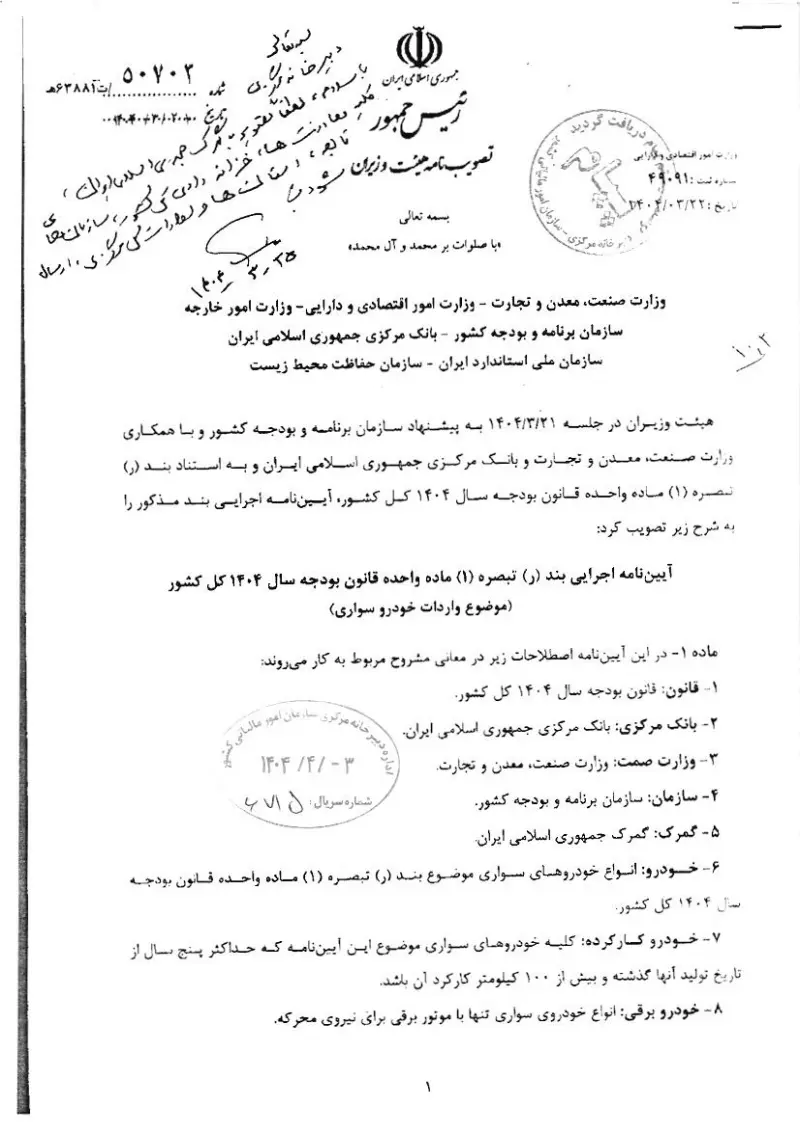 جمهوری اسلامی ایران
رئیس جمهور
تصویب نامه هیئت وزیران
شماره ۵۰۷۰۲/ت۶۳۸۸۱هـ
تاریخ
بسمه تعالی
دبیرخانه مرکزی
با سلام، لطفا تصویر به گمرک جمهوری اسلامی ایران،
شود
۱۴۰۴-۳-۲۵
دریافت گردید
وزارت امور اقتصادی و دارایی
شماره ثبت: ۴۹۰۹۱
تاریخ: ۱۴۰۴/۰۳/۲۲
بسمه تعالی
«با صلوات بر محمد و آل محمد»
وزارت صنعت، معدن و تجارت - وزارت امور اقتصادی و دارایی- وزارت امور خارجه
سازمان برنامه و بودجه کشور - بانک مرکزی جمهوری اسلامی ایران
سازمان ملی استاندارد ایران - سازمان حفاظت محیط زیست
هیئت وزیران در جلسه ۱۴۰۴/۳/۲۱ به پیشنهاد سازمان برنامه و بودجه کشور و با همکاری
وزارت صنعت، معدن و تجارت و بانک مرکزی جمهوری اسلامی ایران و به استناد بند (ر)
تبصره (۱) ماده واحده قانون بودجه سال ۱۴۰۴ کل کشور، آیین‌نامه اجرایی بند مذکور را
به شرح زیر تصویب کرد:
آیین‌نامه اجرایی بند (ر) تبصره (۱) ماده واحده قانون بودجه سال ۱۴۰۴ کل کشور
(موضوع واردات خودرو سواری)
ماده ۱- در این آیین‌نامه اصطلاحات زیر در معانی مشروح مربوط به کار می‌روند:
۱- قانون: قانون بودجه سال ۱۴۰۴ کل کشور.
۲- بانک مرکزی: بانک مرکزی جمهوری اسلامی ایران.
۳- وزارت صمت: وزارت صنعت، معدن و تجارت.
۴- سازمان: سازمان برنامه و بودجه کشور.
۵- گمرک: گمرک جمهوری اسلامی ایران.
۶- خودرو: انواع خودروهای سواری موضوع بند (ر) تبصره (۱) ماده واحده قانون بودجه
سال ۱۴۰۴ کل کشور.
۷- خودرو کارکرده: کلیه خودروهای سواری موضوع این آیین‌نامه که حداکثر پنج سال از
تاریخ تولید آنها گذشته و بیش از ۱۰۰ کیلومتر کارکرد آن باشد.
۸- خودرو برقی: انواع خودروی سواری تنها با موتور برقی برای نیروی محرکه.
اداره دبیرخانه مرکزی سازمان امور مالیاتی کشور
۱۴۰۴/۴/-۳
شماره سریال:
۱